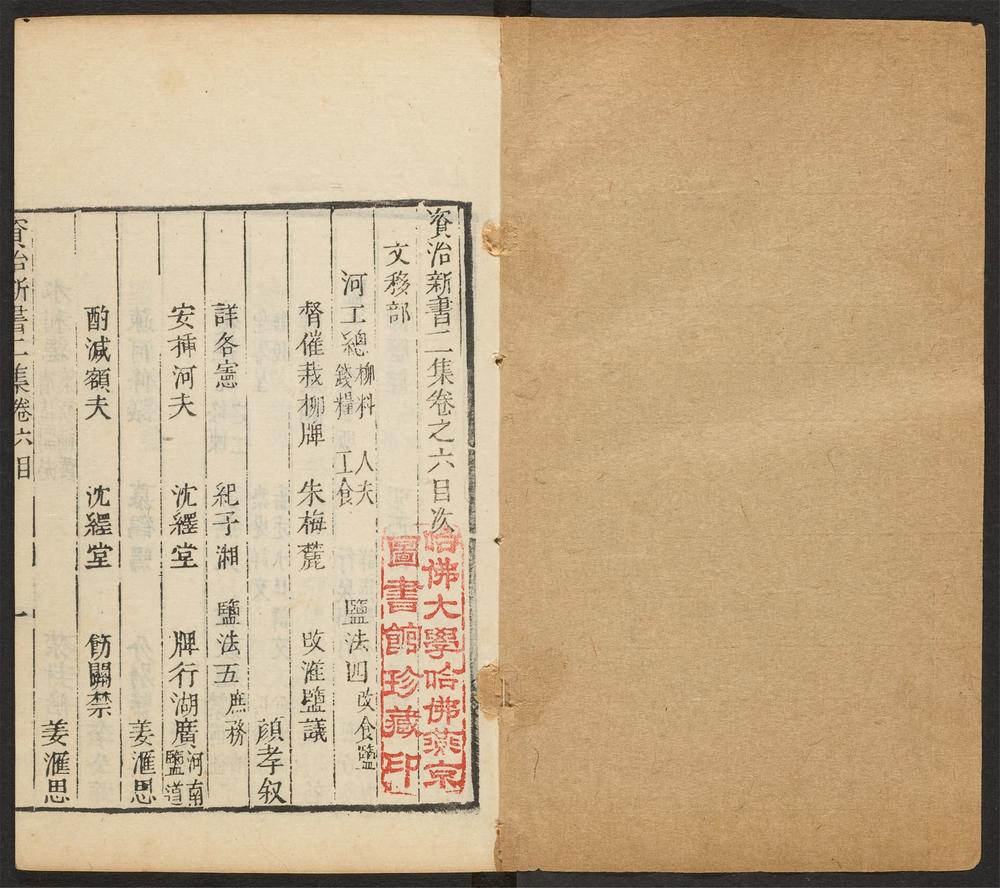 資治新書二集卷之六目次
文移部
河工總 柳料 錢糧 人夫 工食 鹽法四 改食鹽
督催栽柳牌 朱梅麓 改滙鹽議
顔孝叙
詳各憲 紀子湘 鹽法五 庶務
安揷河夫 沈繹堂 牌行湖廣 河南 鹽道
姜滙思
酌減額夫 沈繹堂 飭關禁
姜滙思
資治新書二集卷六目 一
哈佛大學哈佛燕京
圖書館珍藏印